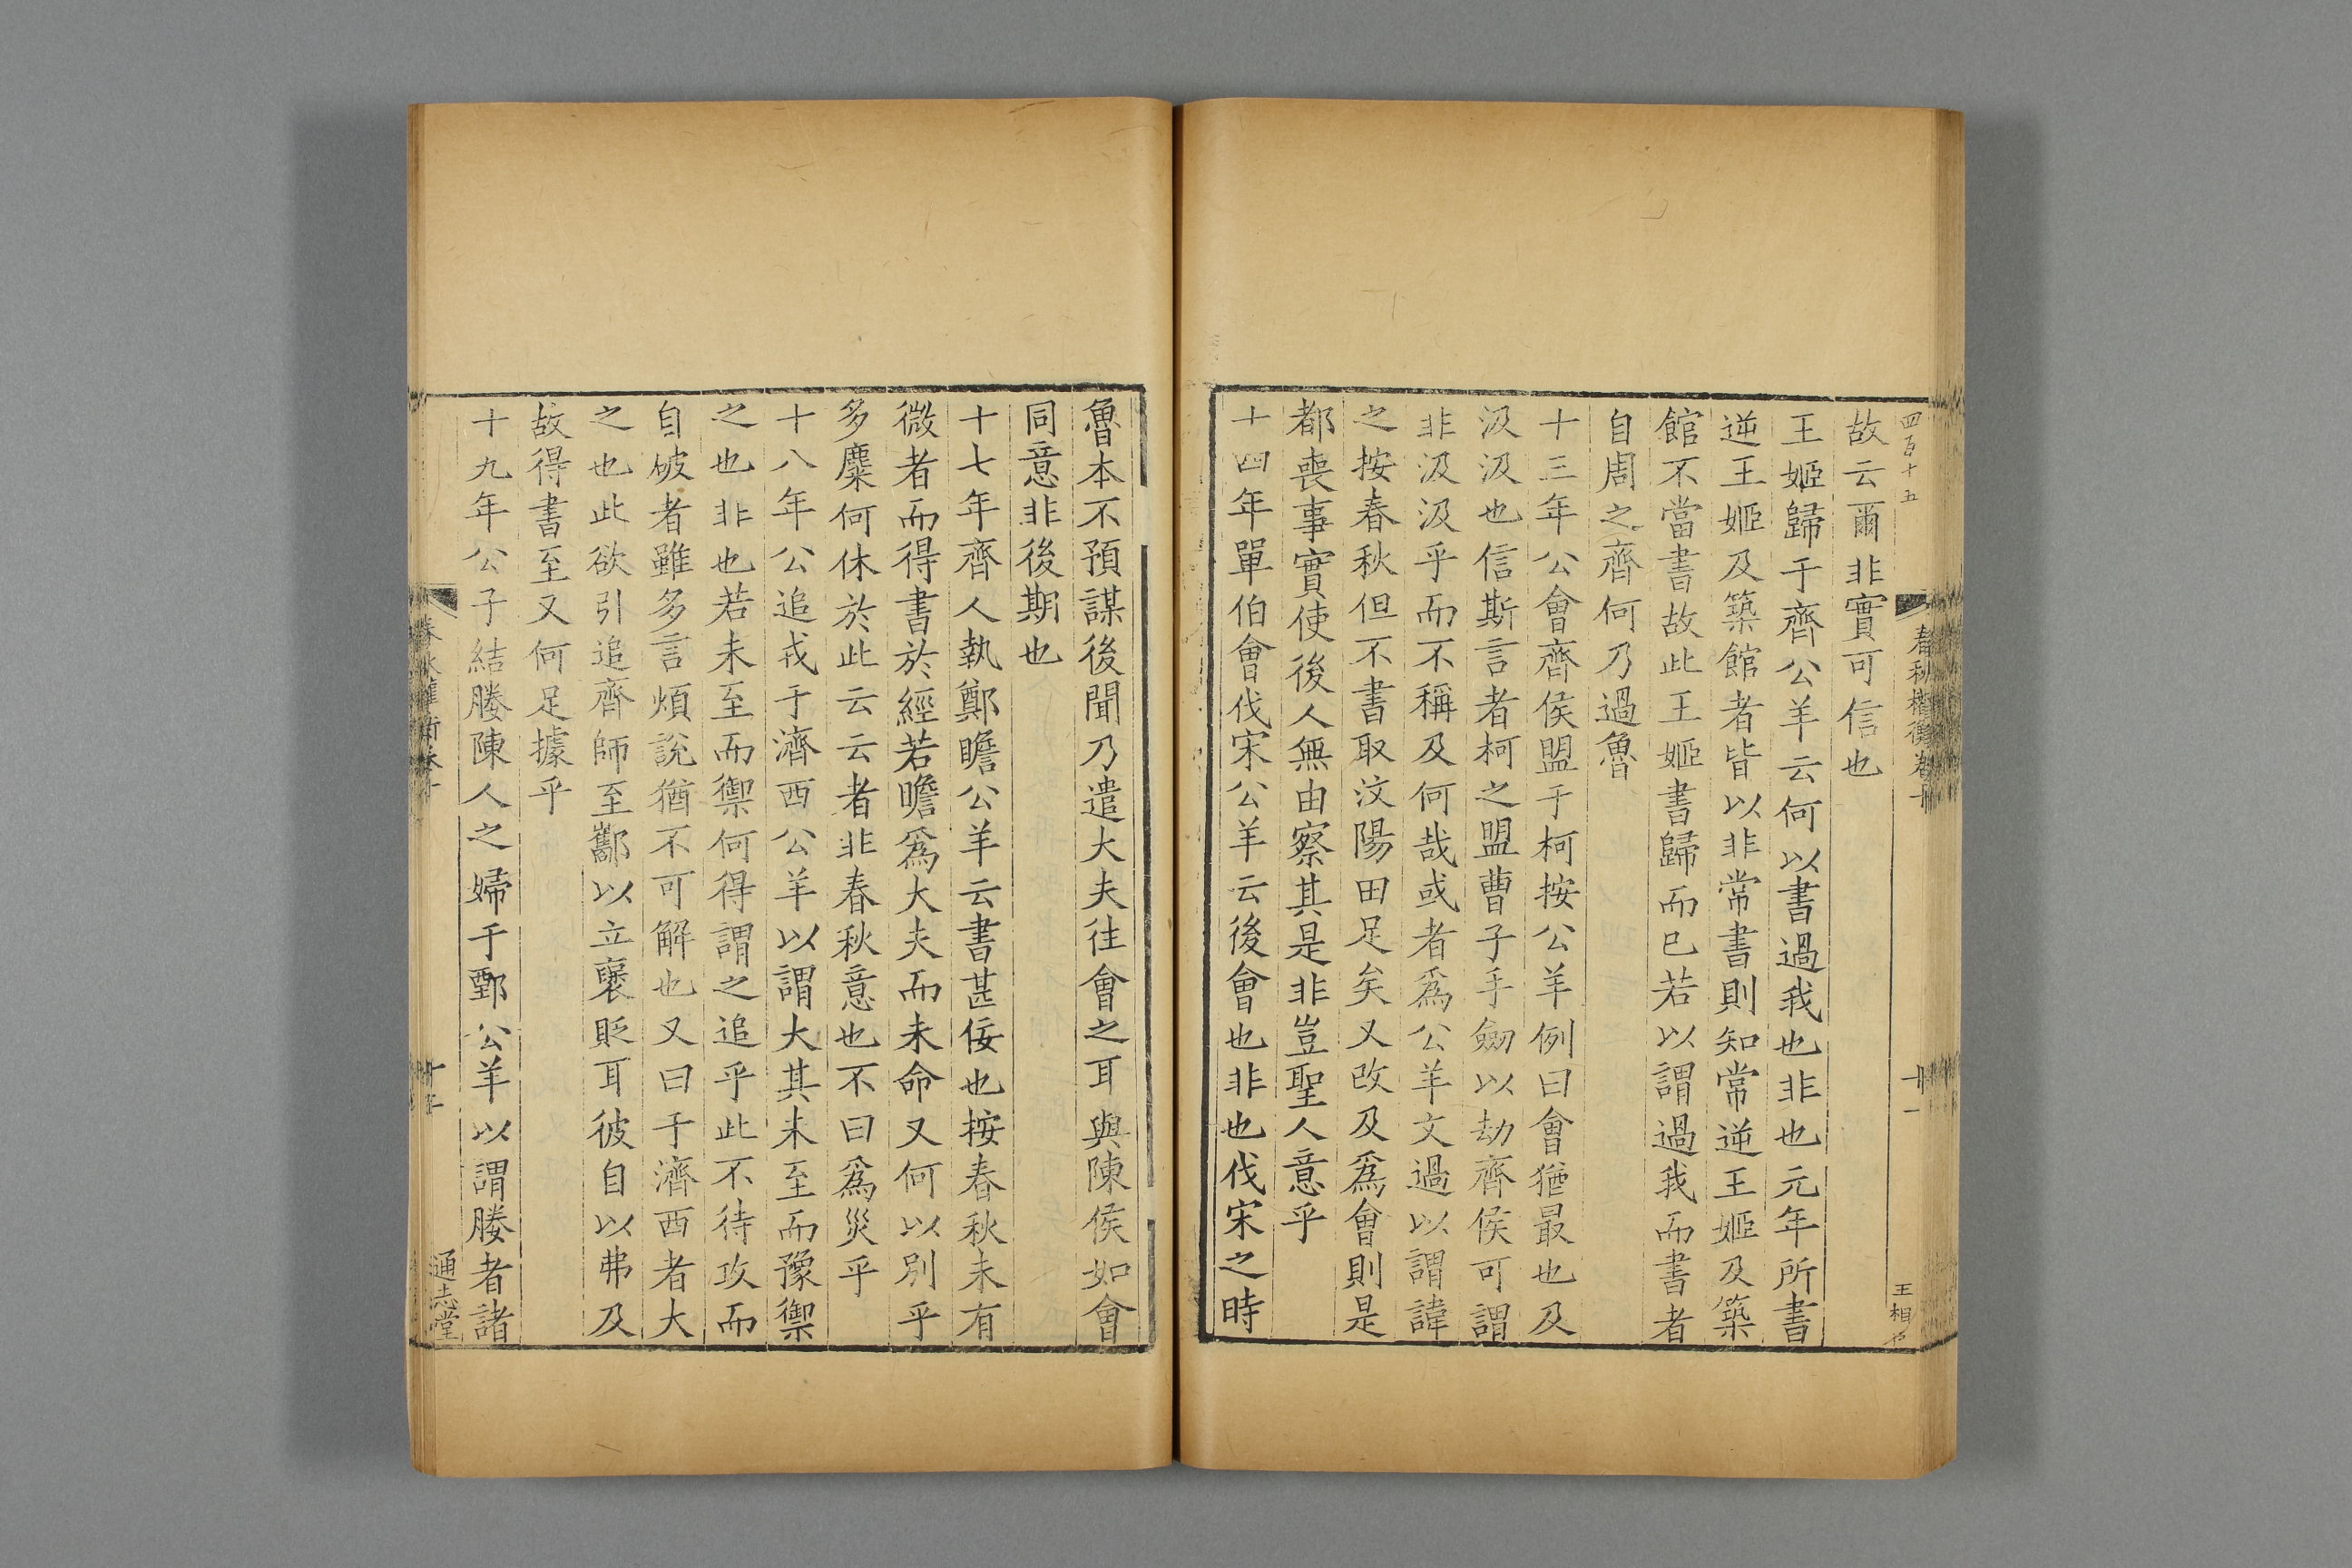 四百十五
春秋權衡卷十
十一
王相
故云爾非實可信也
王姬歸于齊公羊云何以書過我也非也元年所書
逆王姬及築館者皆以非常書則知常逆王姬及築
館不當書故此王姬書歸而已若以謂過我而書者
自周之齊何乃過魯
十三年公會齊侯盟于柯按公羊例曰會猶最也及
汲汲也信斯言者柯之盟曹子手劒以劫齊侯可謂
非汲汲乎而不稱及何哉或者爲公羊文過以謂諱
之按春秋但不書取汶陽田足矣又改及爲會則是
都喪事實使後人無由察其是非豈聖人意乎
十四年單伯會伐宋公羊云後會也非也伐宋之時
魯本不預謀後聞乃遣大夫往會之耳與陳侯如會
同意非後期也
十七年齊人執鄭瞻公羊云書甚佞也按春秋未有
微者而得書於經若瞻爲大夫而未命又何以別乎
多麋何休於此云云者非春秋意也不曰爲災乎
十八年公追戎于濟西公羊以謂大其未至而豫禦
之也非也若未至而禦何得謂之追乎此不待攻而
自破者雖多言煩說猶不可解也又曰于濟西者大
之也此欲引追齊師至酅以立襃貶耳彼自以弗及
故得書至又何足據乎
十九年公子結媵陳人之婦于鄄公羊以謂媵者諸
春秋權衡卷十
通志堂